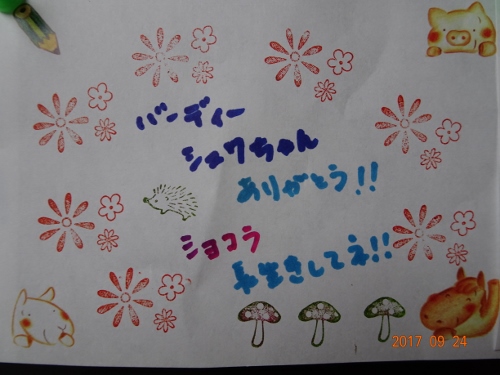 バーディー
シュワちゃん
ありがとう!!
ショコラ
長生きしてネ!!
2017.09.24